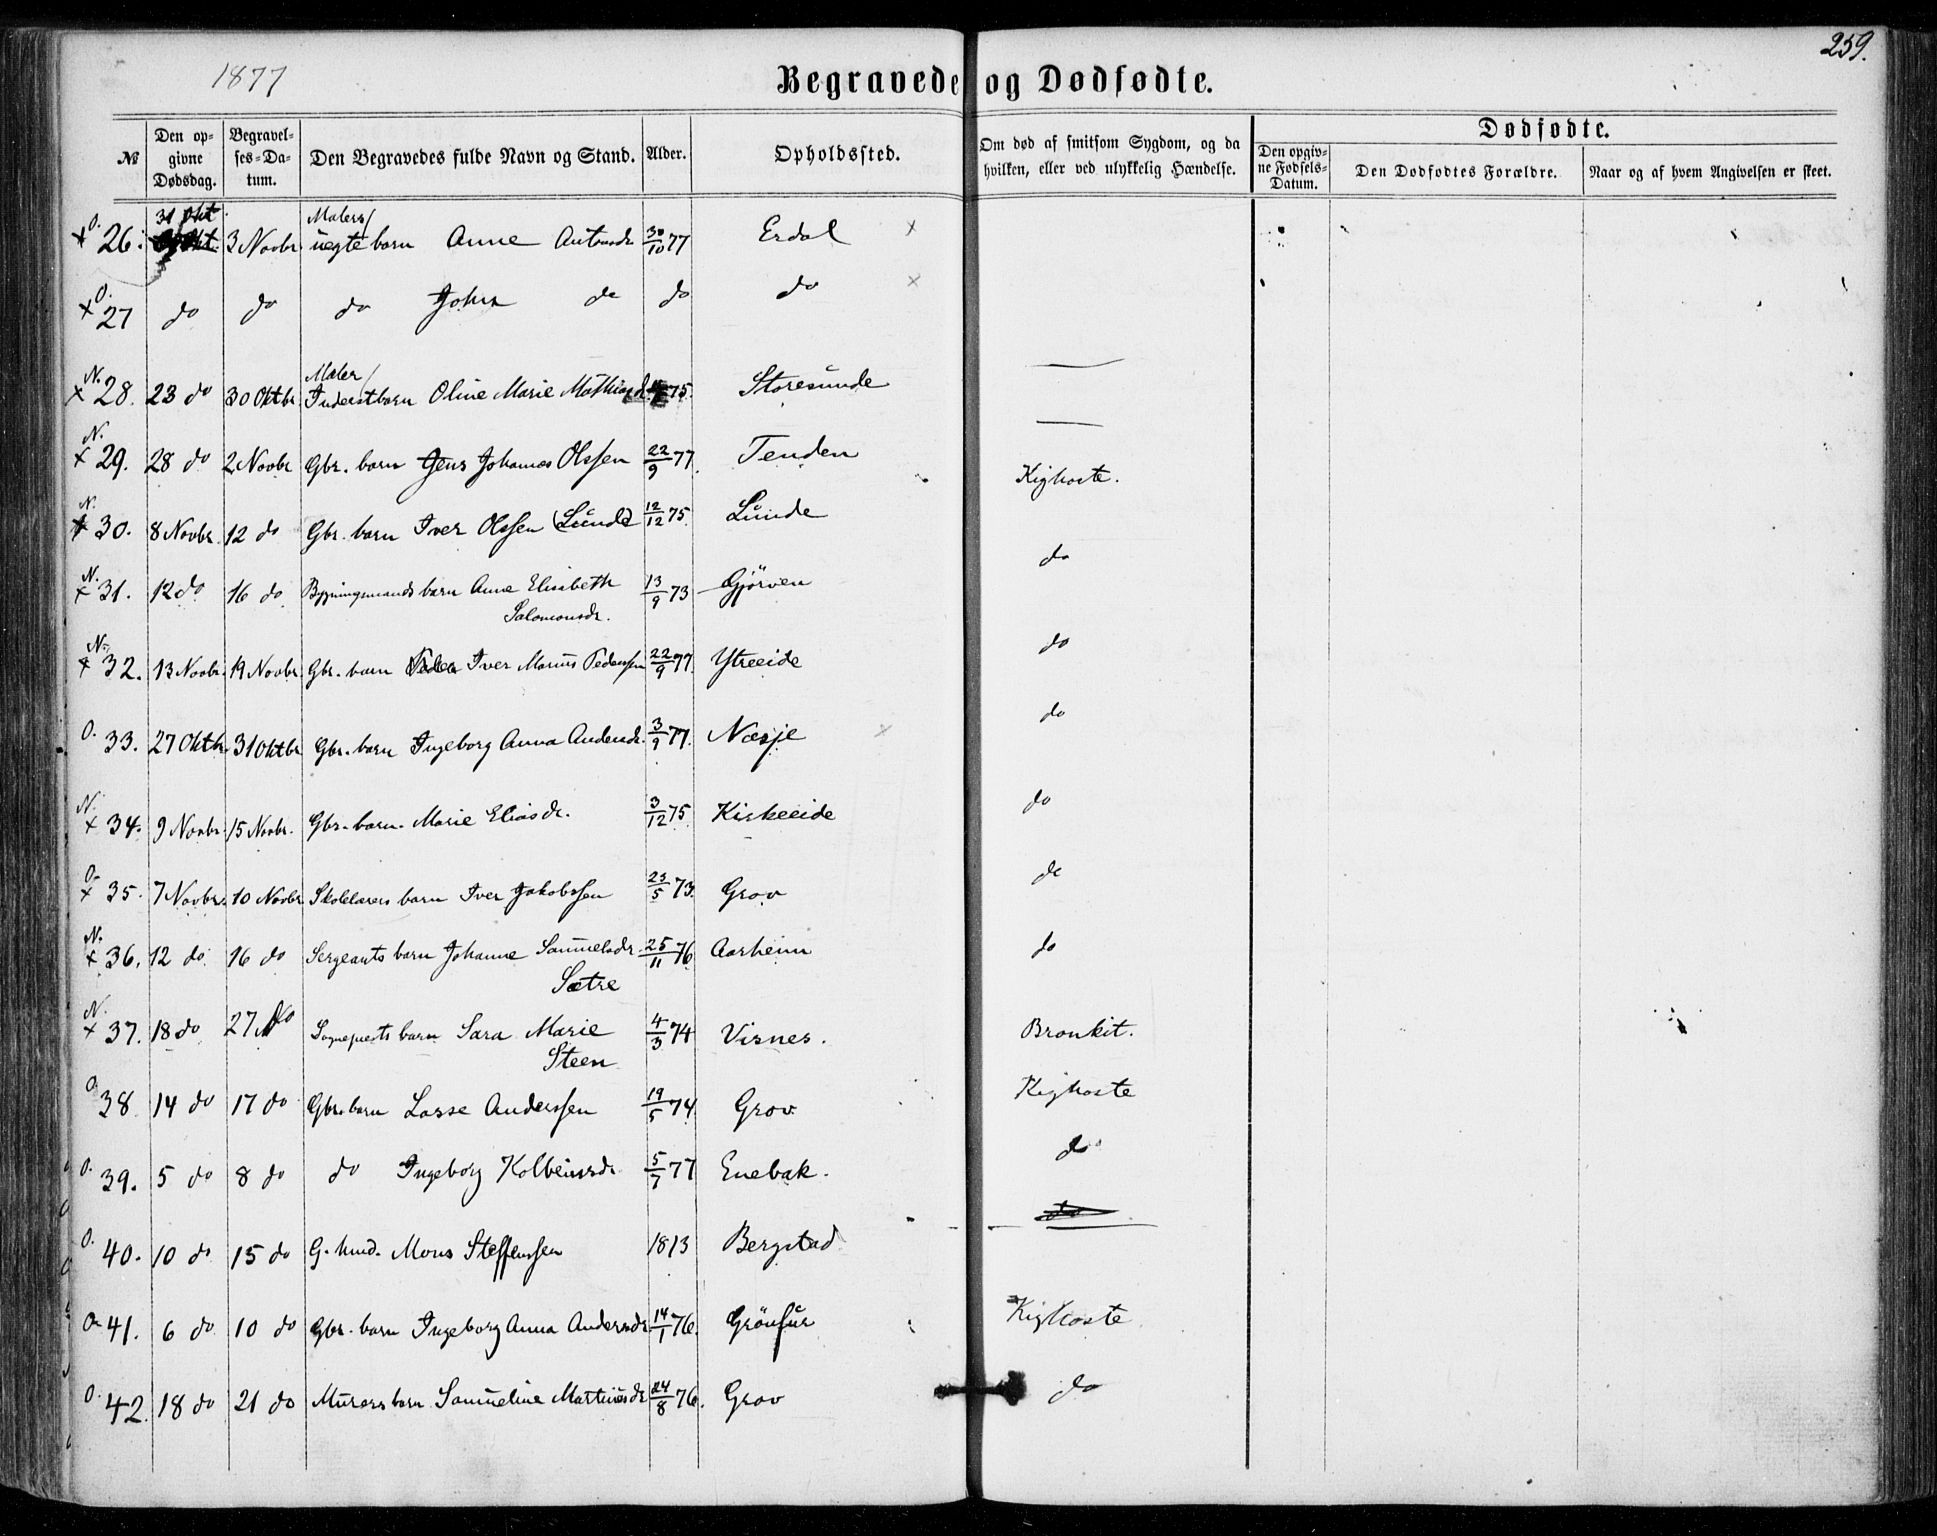 259.
1877
Begravede og Dødfødte.
№ Den opgivne Dødsdag. Begravelses-Datum. Den Begravedes fulde Navn og Stand. Alder. Opholdssted. Om død af smitsom Sygdom, og da hvilken, eller ved ulykkelig Hændelse. Dødfødte. Den opgivne Fødsels-Datum. Den Dødfødtes Forældre. Naar og af hvem Angivelsen er skeet.
x O. 26. 31 Okt. 3 Novbr. Malers/ uegte barn Anne Antonsdr 30/10 77 Erdal x
x O. 27 do do do John do do do x
x N. 28. 23 do 30 Oktbr. Maler/ Inderstbarn Oline Marie Mathiasd. 75. Storesunde —
x N. 29. 28 do 2 Novbr Gbr. barn Jens Johannes Olssen 22/9 77. Tenden —
x N. 30. 8 Novbr. 12 do Gbr. barn Iver Olssen (Lunde) 12/12 75. Lunde Kighoste.
x N. 31. 12 do 16 do Bygningsmands barn Anne Elisabeth Salomonsdr. 13/9 73 Gjörven do
x N. 32. 13 Novbr. 19 Novbr. Gbr. barn Iver Marius Pederssen 22/9 77. Ytreeide do
O. 33. 27 Oktbr. 31 Oktbr Gbr. barn Ingeborg Anna Andersdr. 3/9 77. Nesje x do
x N. 34. 9 Novbr. 15 Novbr. Gbr. barn. Marie Eliasdr. 3/12 75 Kirkeeide do
x O. 35. 7 Novbr. 10 Novbr Skolelærers barn Iver Jakobssen 23/5 73. Grov do
x N. 36. 12 do 16 do Sergeants barn Johanne Samuelsdr. Sætre 25/11 76 Aarheim do
x N. 37. 18 do 27 do Sogneprests barn Sara Marie Steen 4/3 74 Visnes. Bronkit.
O. 38. 14 do 17 do Gbr. barn Lasse Anderssen 19/5 74 Grov Kighoste
O. 39. 5 do 8 do do Ingeborg Kolbeinsdr. 5/7 77 Enebak. do
O. 40. 10 do 15 do G. kmd. Mons Steffenssen 1813 Bergstad do
O. 41. 6 do 10 do Gbr. barn Ingeborg Anna Andersdr 14/1 76. Grönfur Kighoste
O. 42. 18 do 21 do Murers barn Samueline Martinusdr 24/8 76. Grov do